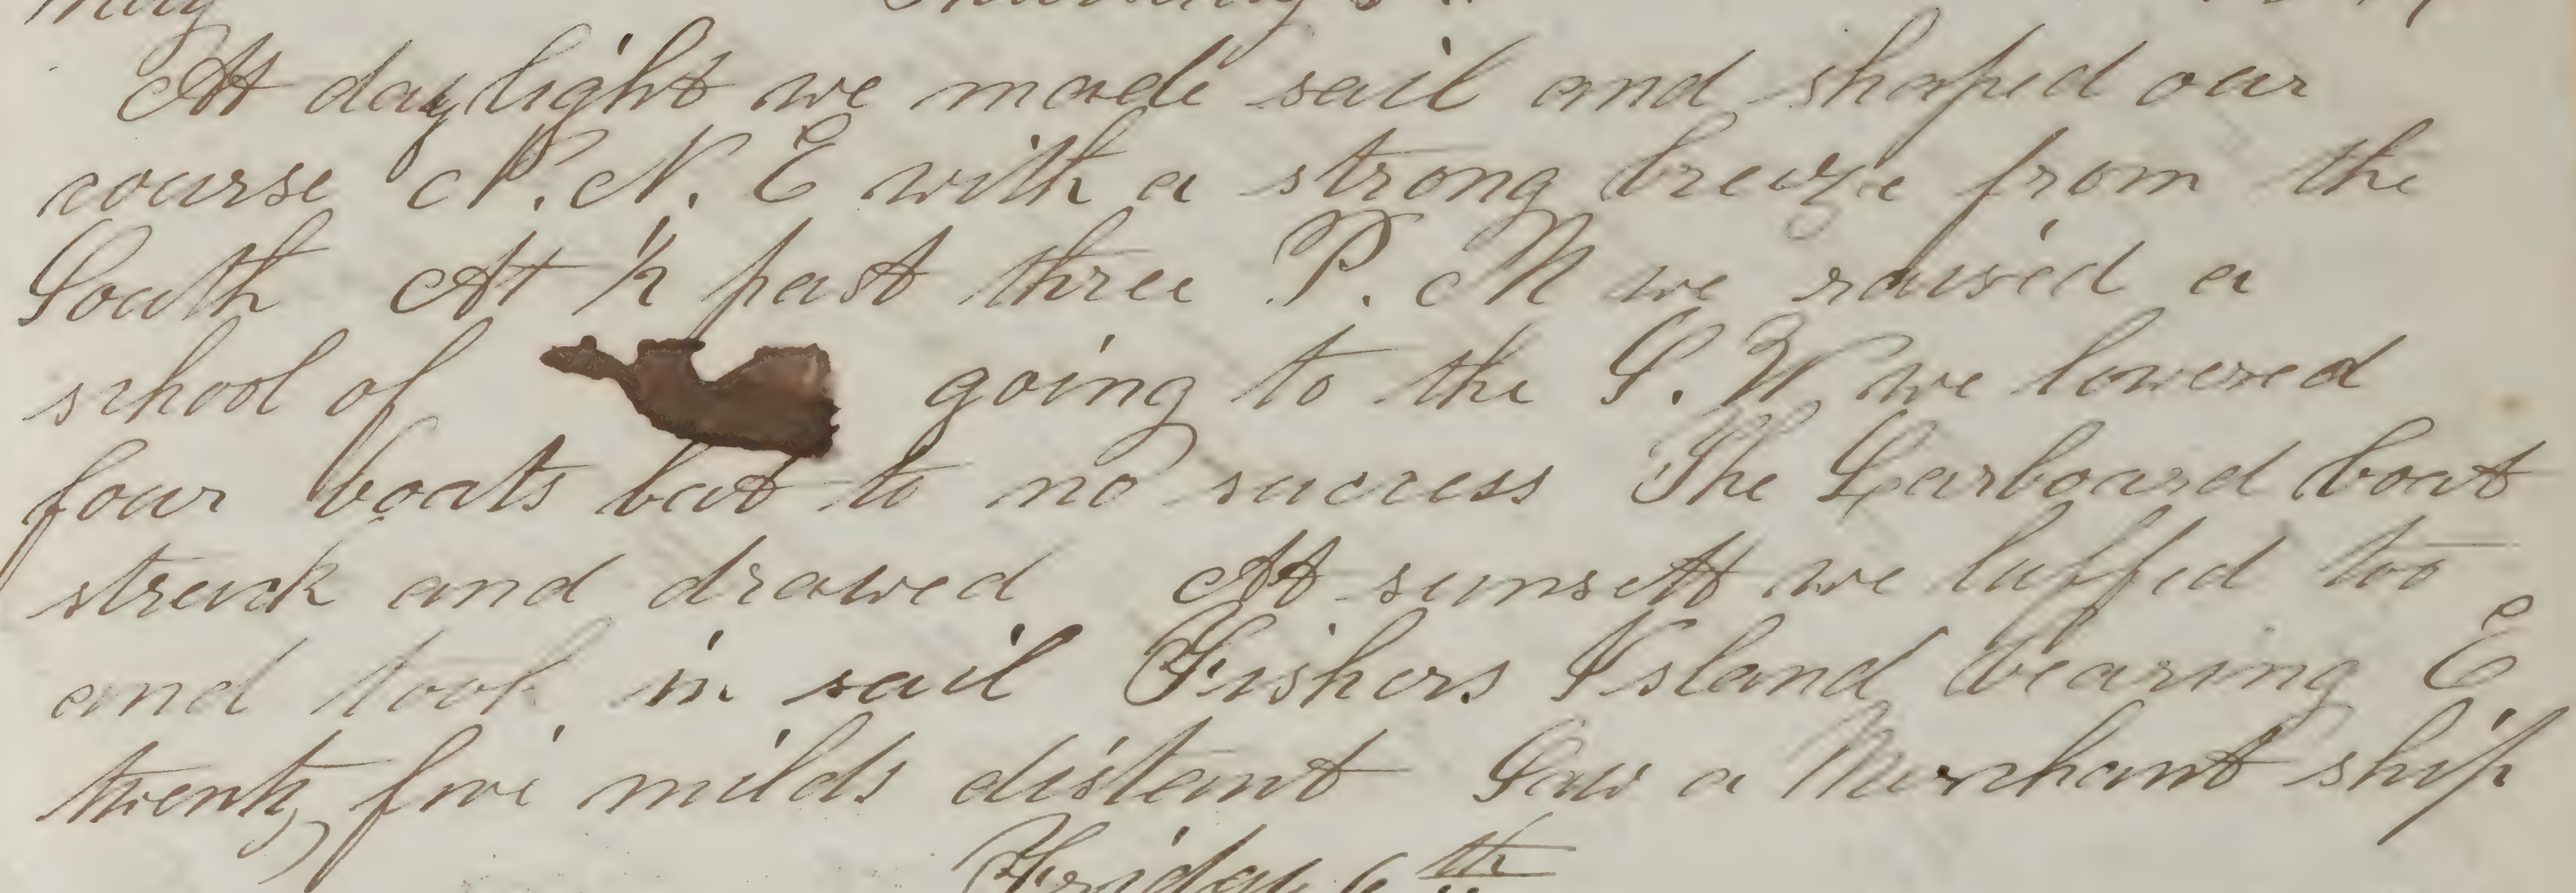 May Thursday 5th
At daylight we made sail and shaped our
course N. N. E with a strong breeze from the
South At ½ past three P. M we raised a
school of going to the S. W we lowered
four boats but to no success The Larboard boat
struck and drawed At sunsett we luffed too
and took in sail Fishers Island bearing E
twenty five milds distant Saw a Merchant ship
Friday 6th